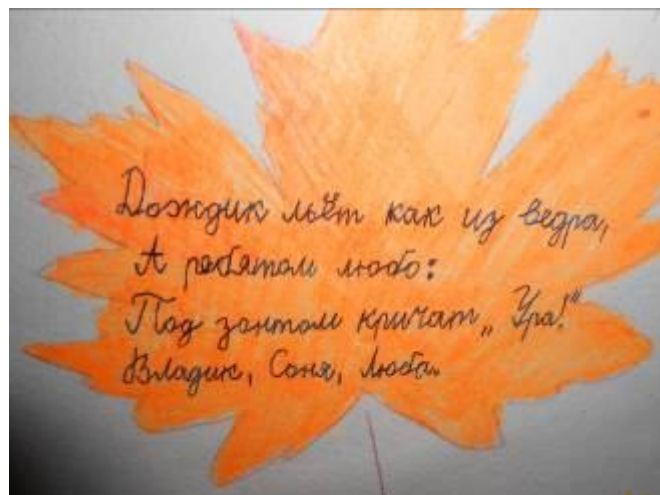 Дождик льёт как из ведра,
А ребятам любо:
Под зонтом кричат „Ура!"
Владик, Соня, Люба.